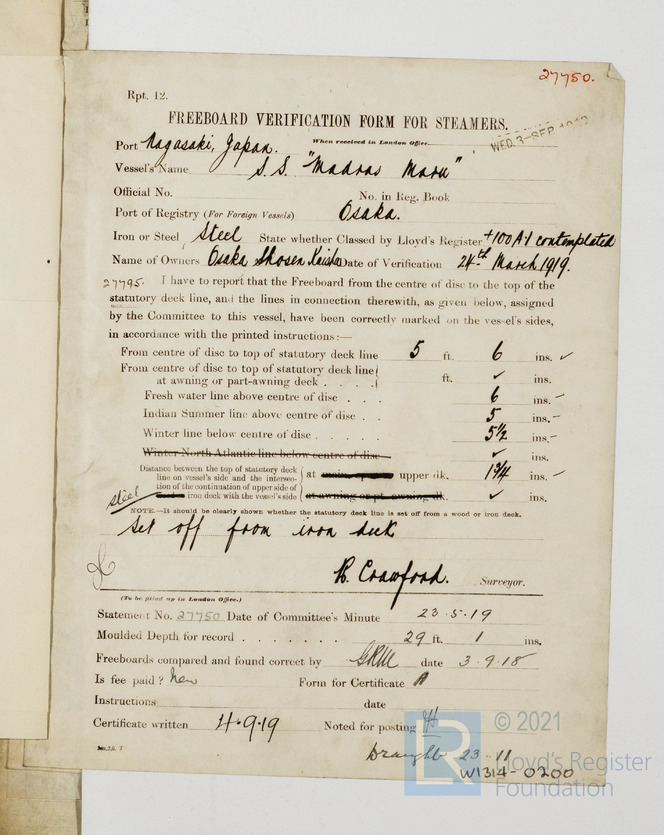 27750.
Rpt. 12.
FREEBOARD VERIFICATION FORM FOR STEAMERS.
When received in London Office. WED. 3-SEP. 1919
Port Nagasaki, Japan.
Vessel's Name S.S. "Madras Maru"
Official No. No. in Reg. Book
Port of Registry (For Foreign Vessels) Osaka.
Iron or Steel Steel State whether Classed by Lloyd's Register +100A1 contemplated
Name of Owners Osaka Shosen Kaisha Date of Verification 24th March 1919.
27795. I have to report that the Freeboard from the centre of disc to the top of the
statutory deck line, and the lines in connection therewith, as given below, assigned
by the Committee to this vessel, have been correctly marked on the vessel's sides,
in accordance with the printed instructions:—
From centre of disc to top of statutory deck line 5 ft. 6 ins. ✓
From centre of disc to top of statutory deck line
at awning or part-awning deck . . . . ft. ✓ ins.
Fresh water line above centre of disc . . . 6 ins. –
Indian Summer line above centre of disc . . 5 ins. –
Winter line below centre of disc . . . . . 5½ ins. –
Winter North Atlantic line below centre of disc ✓ ins.
Distance between the top of statutory deck
line on vessel's side and the intersec-
tion of the continuation of upper side of
steel iron deck with the vessel's side
at upper dk. 1¾ ins. –
at awning or pt. awning dk. ✓ ins.
NOTE.—It should be clearly shown whether the statutory deck line is set off from a wood or iron deck.
Set off from iron deck
R. Crawford. Surveyor.
(To be filled up in London Office.)
Statement No. 27750 Date of Committee's Minute 23.5.19
Moulded Depth for record . . . . . . . 29 ft. 1 ins.
Freeboards compared and found correct by date 3.9.18
Is fee paid? Form for Certificate A
Instructions date
Certificate written 4.9.19 Noted for posting
Draught 23.11
W1314-0200
LR
© 2021
Lloyd's Register
Foundation